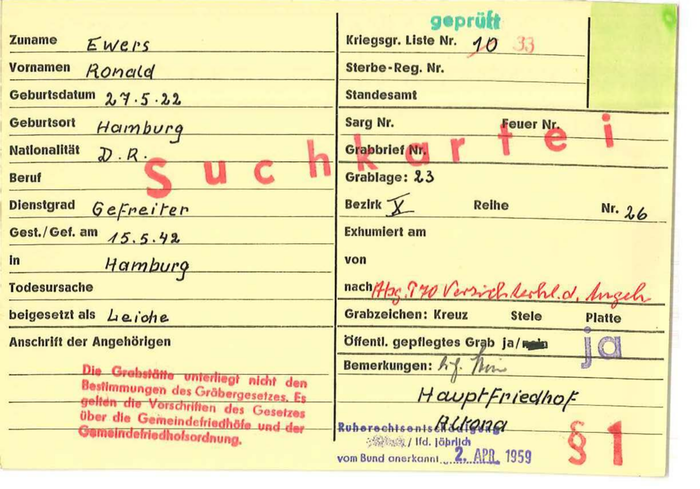 geprüft
Zuname Ewers
Vornamen Ronald
Geburtsdatum 27.5.22
Geburtsort Hamburg
Nationalität D.R.
Beruf
Dienstgrad Gefreiter
Gest./Gef. am 15.5.42
in Hamburg
Todesursache
beigesetzt als Leiche
Anschrift der Angehörigen
Die Grabstätte unterliegt nicht den
Bestimmungen des Gräbergesetzes. Es
gelten die Vorschriften des Gesetzes
über die Gemeindefriedhöfe und der
Gemeindefriedhofsordnung.
Suchkartei
Kriegsgr. Liste Nr. 10 33
Sterbe-Reg. Nr.
Standesamt
Sarg Nr. Feuer Nr.
Grabbrief Nr.
Grablage: 23
Bezirk X Reihe Nr. 26
Exhumiert am
von
nach Abg. T70 Verzichterkl. d. Angeh
Grabzeichen: Kreuz Stele Platte
Öffentl. gepflegtes Grab ja/nein ja
Bemerkungen:
Hauptfriedhof
Altona
Ruherechtsentschädigung
/ lfd. jährlich
vom Bund anerkannt 2. APR. 1959
§ 1